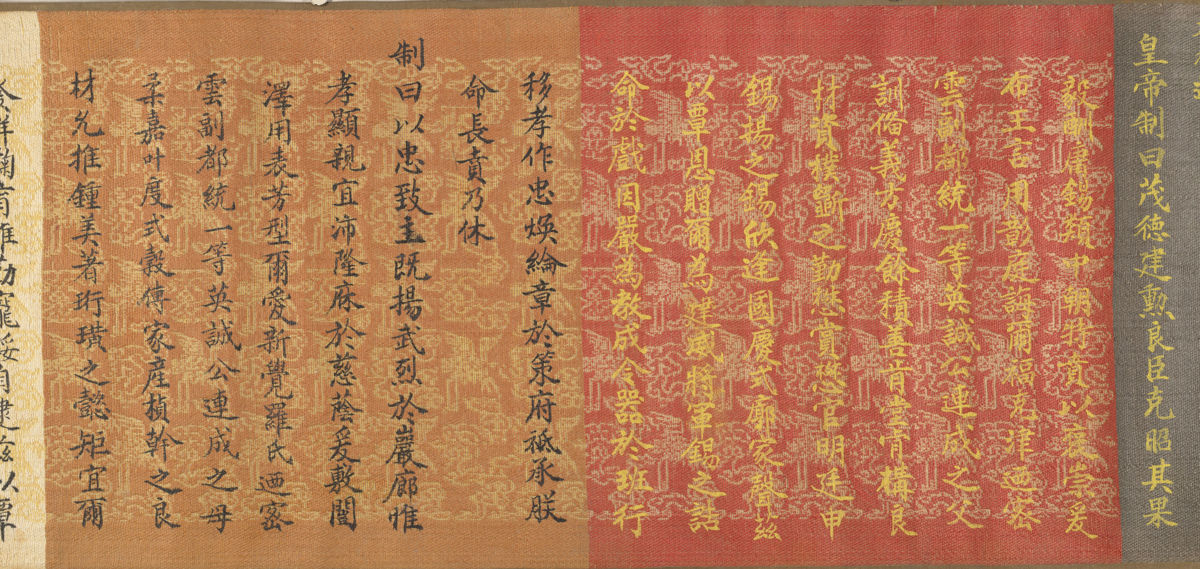 皇帝制曰茂德建勲良臣克昭其果
毅酬庸錫類中朝特賁以褒崇爰
布王言用彰庭誨爾福克津迺密
雲副都統一等英誠公連成之父
訓脩義方慶餘積善肯堂肯構良
材資樸斲之勤懋賞懋官明廷申
錫揚之錫欣逢國慶丕廓家聲茲
以覃恩贈爾為建威將軍錫之誥
命於戲因嚴為教成令器於班行
移孝作忠煥綸章於策府祗承朕
命長賁乃休
制曰以忠致主既揚武烈於巖廊惟
孝顯親宜沛隆庥於慈蔭爰敷閫
澤用表芳型爾愛新覺羅氏迺密
雲副都統一等英誠公連成之母
柔嘉叶度式穀傳家產楨幹之良
材允推鍾美著珩璜之懿矩宜爾
發祥鞠育維勤寵綏自逮茲以覃